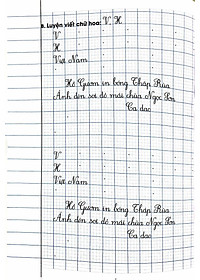 8. Luyện viết chữ hoa: V, H
V
H
Việt Nam
Hồ Gươm in bóng Tháp Rùa
Ánh đèn soi đỏ mái chùa Ngọc Sơn
Ca dao
V
H
Việt Nam
Hồ Gươm in bóng Tháp Rùa
Ánh đèn soi đỏ mái chùa Ngọc Sơn
Ca dao